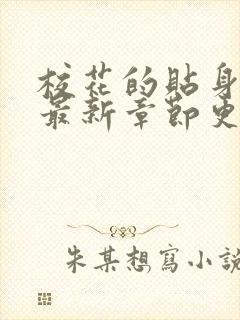 校花的貼身
最新章節更
朱某想寫小說